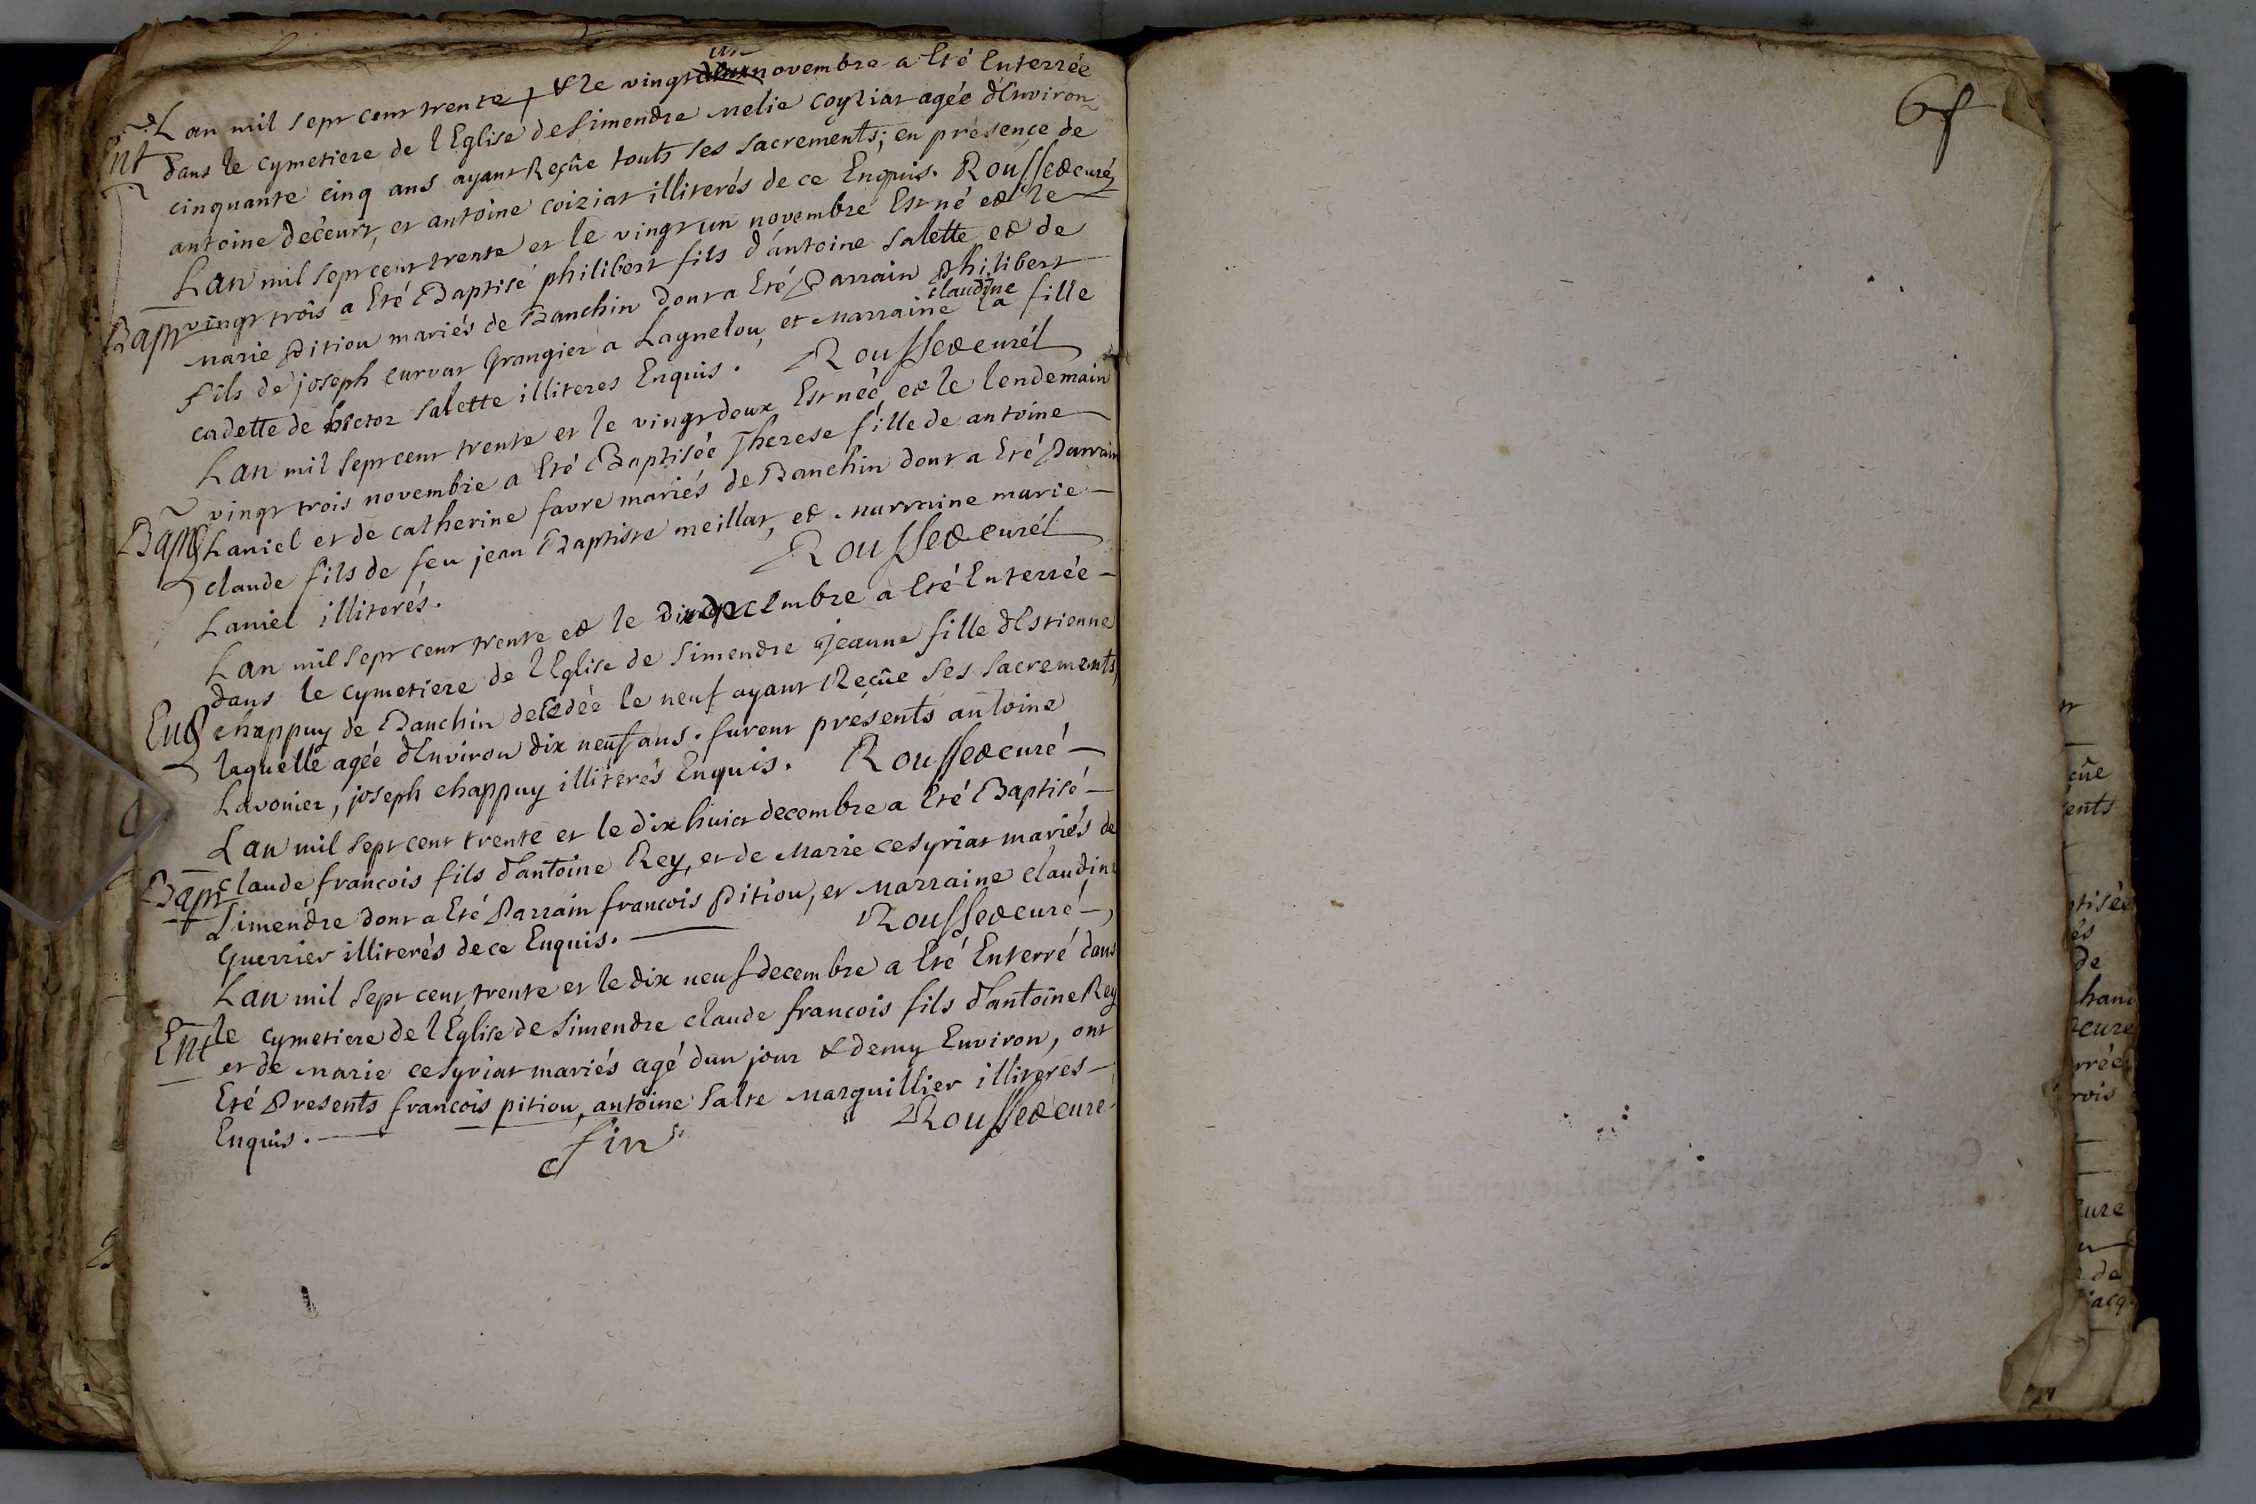 Lan mil sept cent trente & le vingt un novembre a Eté Enterrée
Ent
dans le cymetiere de l'Eglise de Simendre Melie Coyziat agée d'Environ
cinquante cinq ans ayant Reçûe touts ses sacrements; en présence de
antoine deceurt, et antoine coiziat illiterés de ce Enquis. Roussed curé
Lan mil sept cent trente et le vingt un novembre Est né ed le
Bapt
vingt trois a Eté Baptisé philibert fils d'antoine Salette ed de
Marie Pitiou mariés de Banchin dont a Eté Parrain Philibert
fils de joseph curvat Grangier a Lagnelou, et Marraine claudine la fille
cadette de hector Salette illiteres Enquis. Roussed curé
Lan mil sept cent trente et le vingt deux Est née, ed le lendemain
vingt trois novembre a Eté Baptisée Therese fille de antoine
Bapt
Laniel et de catherine favre mariés de Banchin dont a Eté Parrain
claude fils de feu jean Baptiste meillat, ed Marraine marie
Laniel illiterés. Roussed curé
Lan mil sept cent trente ed le dix decembre a Eté Enterrée
dans le cymetiere de l'Eglise de Simendre jeanne fille d'Estienne
Ent
chappuy de Banchin decedée le neuf ayant Reçûe ses sacrements,
laquelle agée d'Environ dix neuf ans. furent présents antoine
Lavonier, joseph chappuy illiterés Enquis. Roussed curé
Lan mil sept cent trente et le dix huict decembre a Eté Baptisé
Bapt
claude francois fils d'antoine Rey, et de Marie cesyriat mariés de
Simendre dont a Eté Parrain francois Pitiou, et Marraine claudine
Guerrier illiterés de ce Enquis. Roussed curé
Lan mil sept cent trente et le dix neuf decembre a Eté Enterré dans
Ent
le cymetiere de l'Eglise de Simendre claude francois fils d'antoine Rey
et de Marie cesyriat mariés agé dun jour & demy Environ, ont
Eté Presents francois pitiou, antoine Salte Marguillier illiteres
Enquis. Roussed curé
fin